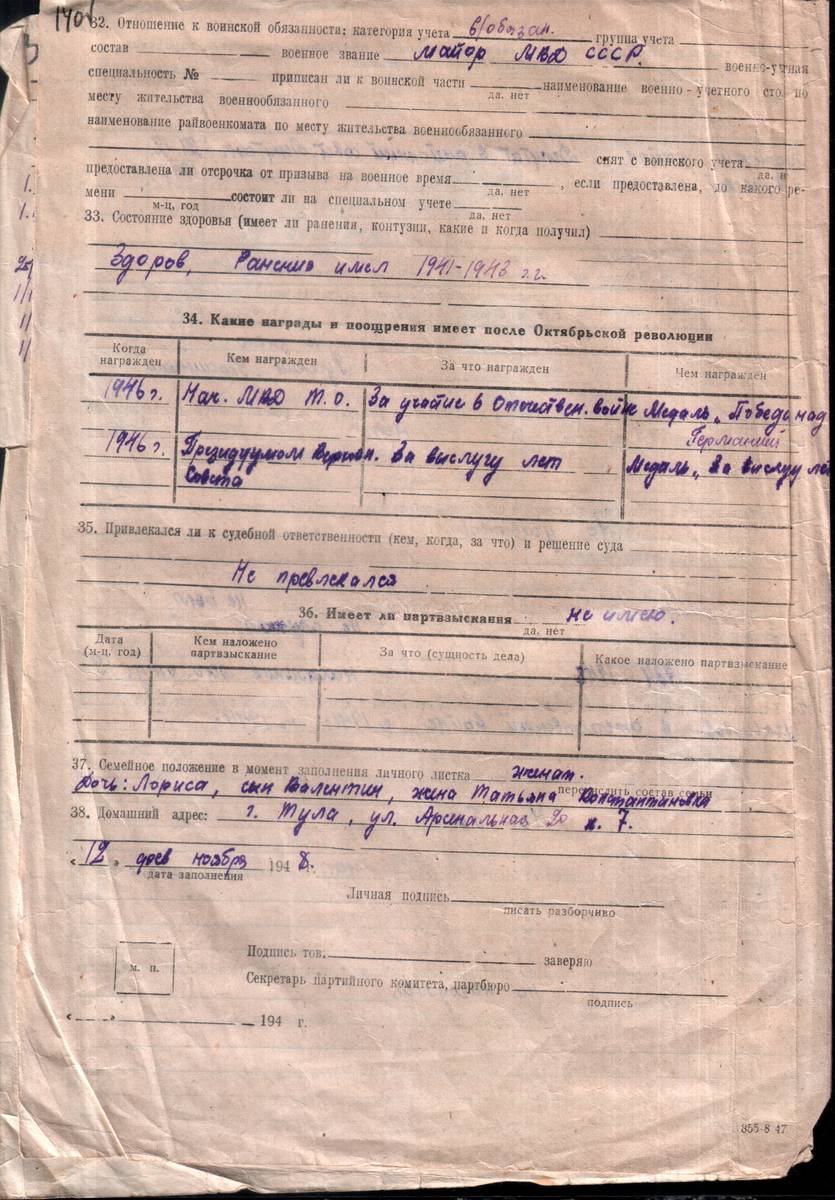 140
32. Отношение к воинской обязанности: категория учета в/обязан. группа учета
состав военное звание Майор МВД СССР. военно-учная
специальность № приписан ли к воинской части наименование военно-учетного сто. по
да. нет
месту жительства военнообязанного
наименование райвоенкомата по месту жительства военнообязанного
снят с воинского учета
да. н
предоставлена ли отсрочка от призыва на военное время , если предоставлена, до какого ре-
да, нет
мени состоит ли на специальном учете
м-ц, год да. нет
33. Состояние здоровья (имеет ли ранения, контузии, какие и когда получил)
Здоров, Ранения имел 1941-1943 г.г.
34. Какие награды и поощрения имеет после Октябрьской революции
Когда награжден Кем награжден За что награжден Чем награжден
1946 г. Нач. МВД Т. О. За участие в Отечествен. войне Медаль „Победа над
Германией
1946 г. Президиумом Верховн. За выслугу лет Медаль „За выслугу ле
Совета
35. Привлекался ли к судебной ответственности (кем, когда, за что) и решение суда
Не превлекался
36. Имеет ли партвзыскания не имею.
да, нет
Дата (м-ц. год) Кем наложено партвзыскание За что (сущность дела) Какое наложено партвзыскание
37. Семейное положение в момент заполнения личного листка женат.
перечислить состав семьи
Дочь: Лориса, сын Валентин, жена Татьяна Константиновна
38. Домашний адрес: г. Тула, ул. Арсенальная 20 к. 7.
„ 12 „ ноября 1948 г.
дата заполнения
Личная подпись
писать разборчиво
Подпись тов. заверяю
м. п.
Секретарь партийного комитета, партбюро
подпись
„ „ 194 г.
855-8 47